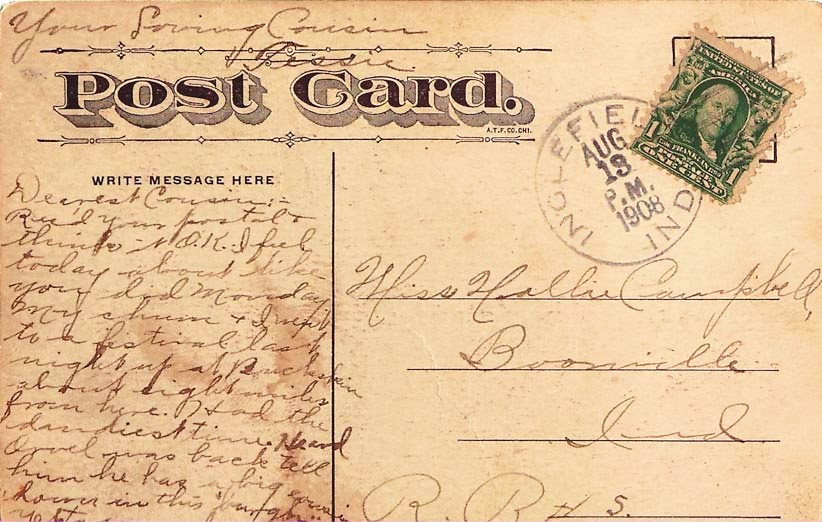 Your Loving Cousin
Tessie.
Post Card.
A.T.F.CO.CHI.
WRITE MESSAGE HERE
Dearest Cousin:-
Rec'd your postal &
think it O.K. I feel
today about like
you did Monday
My chum & I went
to a festival last
night up at Buckskin
about eight miles
from here. Had the
dandiest time. Heard
Orvel was back tell
him he has a big cousin
down in this
INGLEFIELD
IND
AUG
13
P.M.
1908
UNITED STATES OF
AMERICA
1
1
FRANKLIN
POSTAGE
ONE CENT
Miss Hallie Campbell,
Boonville
Ind
R. R. #5.